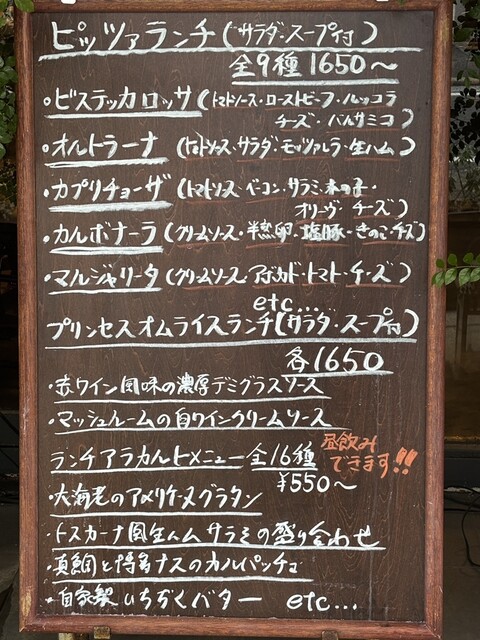 ピッツァランチ(サラダ・スープ付)
全9種 1650〜
・ビステッカロッサ(トマトソース・ローストビーフ・ルッコラ
チーズ・バルサミコ)
・オルトラーナ(トマトソース・サラダ・モッツァレラ・生ハム)
・カプリチョーザ(トマトソース・ベーコン・サラミ・木の子・
オリーヴ・チーズ)
・カルボナーラ(クリームソース・半熟卵・塩豚・きのこ・チーズ)
・マルジャリータ(クリームソース・アボカド・トマト・チーズ)
etc...
プリンセスオムライスランチ(サラダ・スープ付)
各1650
・赤ワイン風味の濃厚デミグラスソース
・マッシュルームの白ワインクリームソース
ランチアラカルトメニュー 全16種
昼飲み
できます!!
¥550〜
・大海老のアメリケーヌグラタン
・トスカーナ風生ハムサラミの盛り合わせ
・真鯛と博多ナスのカルパッチョ
・自家製いちぢくバター etc...